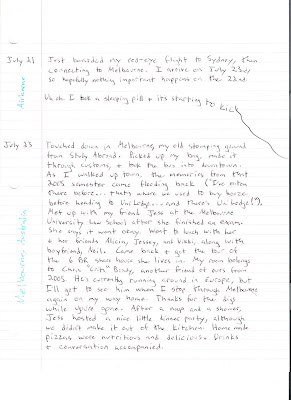 July 21
Just boarded my red-eye flight to Sydney, then
connecting to Melbourne. I arrive on July 23rd,
so hopefully nothing important happens on the 22nd.
Airborne
Uh oh I took a sleeping pill + its starting to kick
July 23
Touched down in Melbourne, my old stomping ground
from Study Abroad. Picked up my bag, made it
through customs, + took the bus into downtown.
As I walked up town, the memories from that
2005 semester came flooding back ("I've eaten
there before... thats where we used to buy booze
before heading to UniLodge... and there's UniLodge!").
Met up with my friend Jess at the Melbourne
University Law School after she finished an exam.
She says it went okay. Went to lunch with her
+ her friends Alicia, Jessey, and Vishi, along with
boyfriend, Neil. Came back + got the tour of
the 6 BR share house she lives in. My room belongs
to Chris Brody, another friend of ours from
2005. He's currently running around in Europe, but
I'll get to see him when I stop through Melbourne
again on my way home. Thanks for the digs
while you're gone. After a nap and a shower,
Jess hosted a nice little dinner party, although
we didn't make it out of the kitchen. Home made
pizzas were nutritious and delicious. Drinks
+ conversation accompanied.
Melbourne, Australia